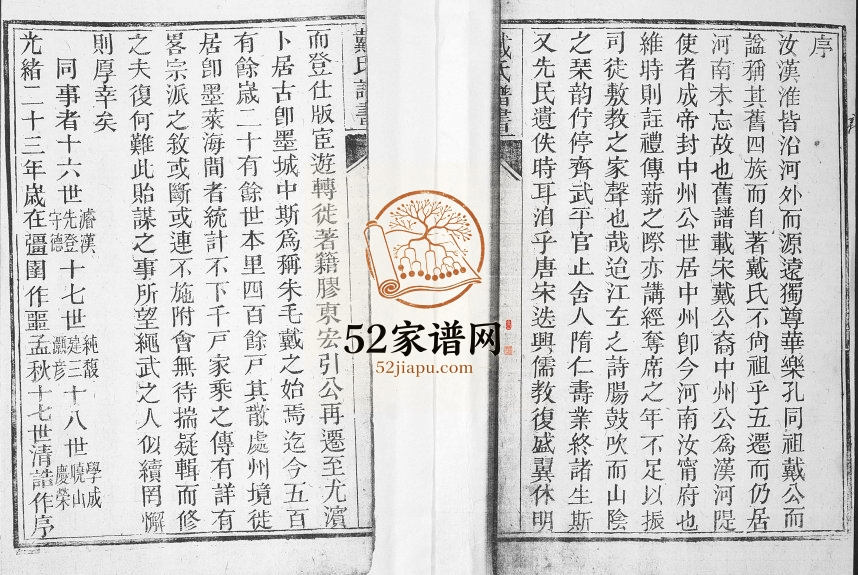 序
汝漢淮皆沿河外而源遠獨尊華樂孔同祖戴公而
諡稱其舊四族而自著戴氏不尙祖乎五遷而仍居
河南未忘故也舊譜載宋戴公裔中州公爲漢河隄
使者成帝封中州公世居中州卽今河南汝甯府也
維時則註禮傳薪之際亦講經奪席之年不足以振
司徒敷敎之家聲也哉迨江左之詩腸鼓吹而山陰
之琹韵佇停齊武平官止舍人隋仁壽業終諸生斯
又先民遺佚時耳洎乎唐宋迭興儒敎復盛翼休明
戴氏譜書
戴氏譜書
而登仕版宦遊轉徙著籍膠東宏引公再遷至尤濱
卜居古卽墨城中斯爲稱朱毛戴之始焉迄今五百
有餘嵗二十有餘世本里四百餘戸其散處州境徙
居卽墨萊海間者統計不下千戸家乘之傳有詳有
畧宗派之敘或斷或連不施附會無待揣疑輯而修
之夫復何難此貽謀之事所望繩武之人似續罔懈
則厚幸矣
同事者十六世 濬漢 先登 守德 十七世 純馥 是三 灝彥 十八世 學成 曉山 慶榮
光緒二十三年嵗在彊圉作噩孟秋十七世清誥作序
52家谱网
52jiapu.com